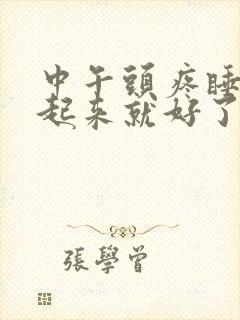 中午頭疼睡
起来就好了
張學曾